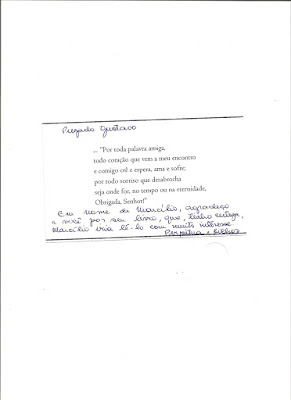 Prezado Gustavo
... "Por toda palavra amiga,
todo coração que vem a meu encontro
e comigo crê e espera, ama e sofre;
por todo sorriso que desabrocha
seja onde for, no tempo ou na eternidade,
Obrigada, Senhor!"
Em nome de Marcílio, agradeço
a você por seu livro, que, tenho certeza,
Marcílio iria lê-lo com muito interesse
Perpétua e filhos